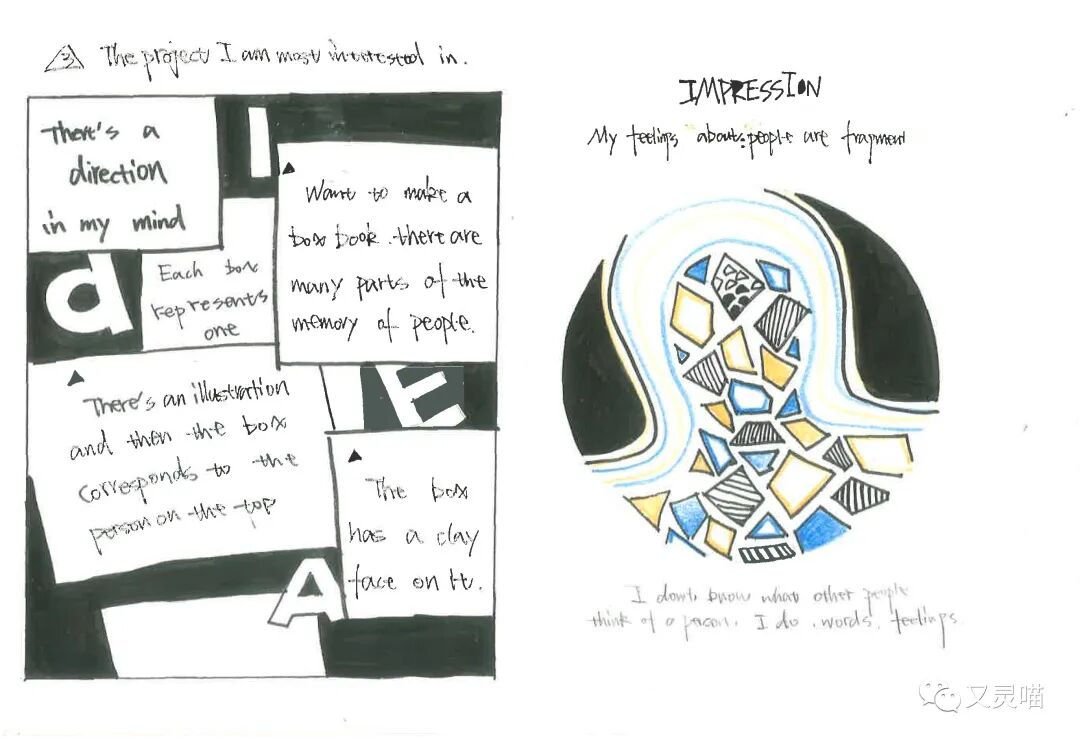 3 The project I am most interested in.
There's a
direction
in my mind
I
d
Each box
represents
one
Want to make a
box book. there are
many parts of the
memory of people.
There's an illustration
and then the box
corresponds to the
person on the top
E
The box
has a clay
face on it.
A
IMPRESSION
My feelings about people are fragment
I don't know what other people
think of a person. I do. words. feelings.
又灵喵